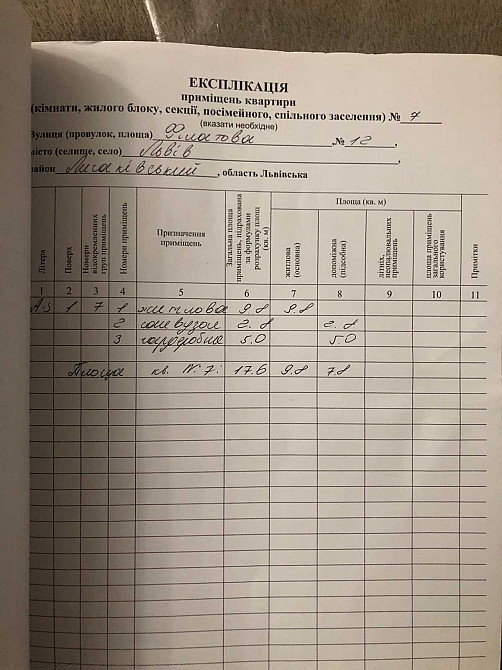 ЕКСПЛІКАЦІЯ
приміщень квартири
(кімнати, жилого блоку, секції, посімейного, спільного заселення) № 7
(вказати необхідне)
Вулиця (провулок, площа) Філатова, № 12,
місто (селище, село) Львів,
район Личаківський, область Львівська
Літера
Поверх
Номери відокремлених груп приміщень
Номери приміщень
Призначення приміщень
Загальна площа приміщень, підрахована за формулами розрахунку площ (кв. м)
Площа (кв. м)
житлова (основна)
допоміжна (підсобна)
літніх, неопалювальних приміщень
площа приміщень загального користування
Примітки
1 2 3 4 5 6 7 8 9 10 11
А-5 1 7 1 житлова 9.8 9.8
2 санвузол 2.8 2.8
3 гардеробна 5.0 5.0
Площа кв. №7: 17.6 9.8 7.8